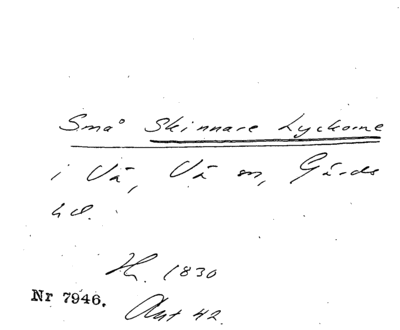 Små Skinnare Lyckorne
i Vä, Vä sn, Gärds
hd.
H. 1830
Nr 7946. Akt 42